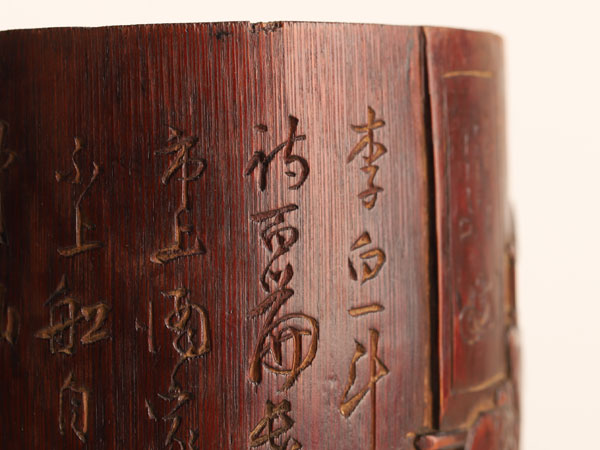 李白一斗
詩百篇長
市上酒家
不上船自